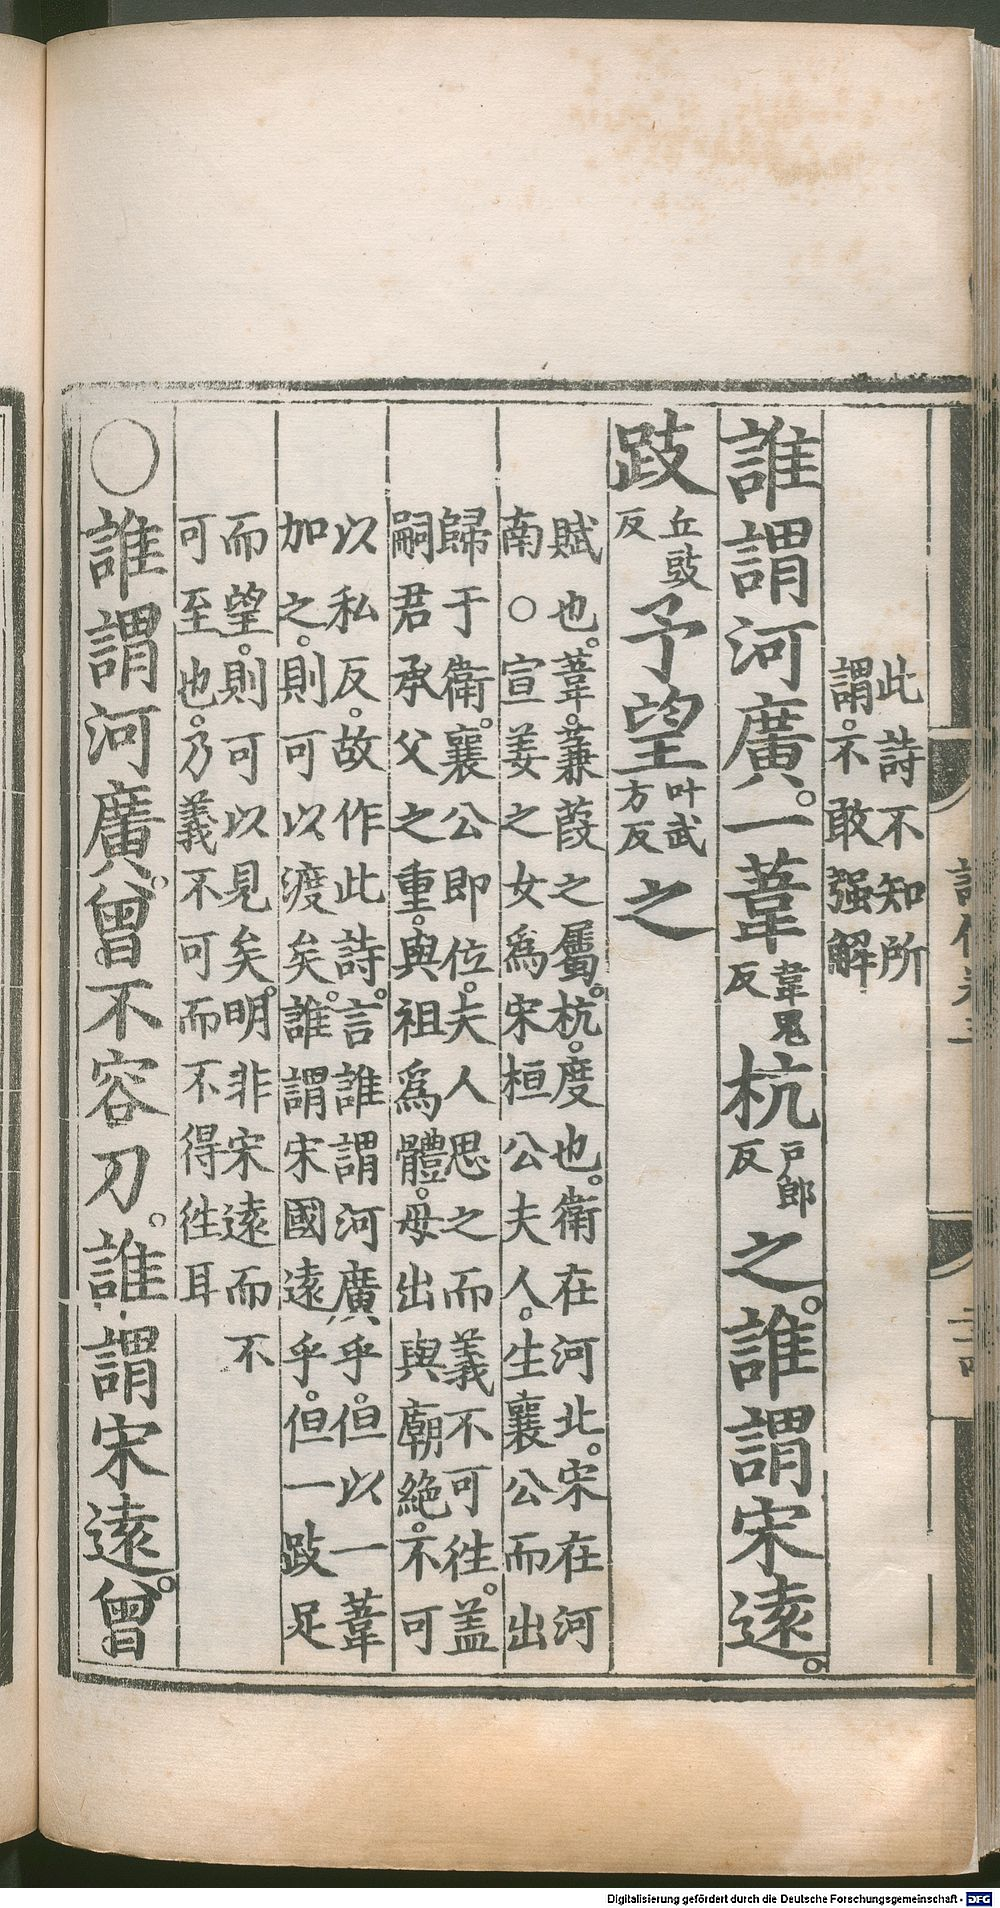 此詩不知所
謂。不敢强解
誰謂河廣。一葦韋鬼反杭戶郎反之。誰謂宋遠。
跂丘豉反予望叶武方反之
賦也。葦。蒹葭之屬。杭。度也。衛在河北。宋在河
南○宣姜之女爲宋桓公夫人。生襄公而出
歸于衛。襄公即位。夫人思之而義不可徃。盖
嗣君承父之重。與祖爲體。母出與廟絶。不可
以私反。故作此詩。言誰謂河廣乎。但以一葦
加之。則可以渡矣。誰謂宋國遠乎。但一跂足
而望。則可以見矣。明非宋遠而不
可至也。乃義不可而不得徃耳
○誰謂河廣。曾不容刀。誰謂宋遠。曾
Digitalisierung gefördert durch die Deutsche Forschungsgemeinschaft - DFG